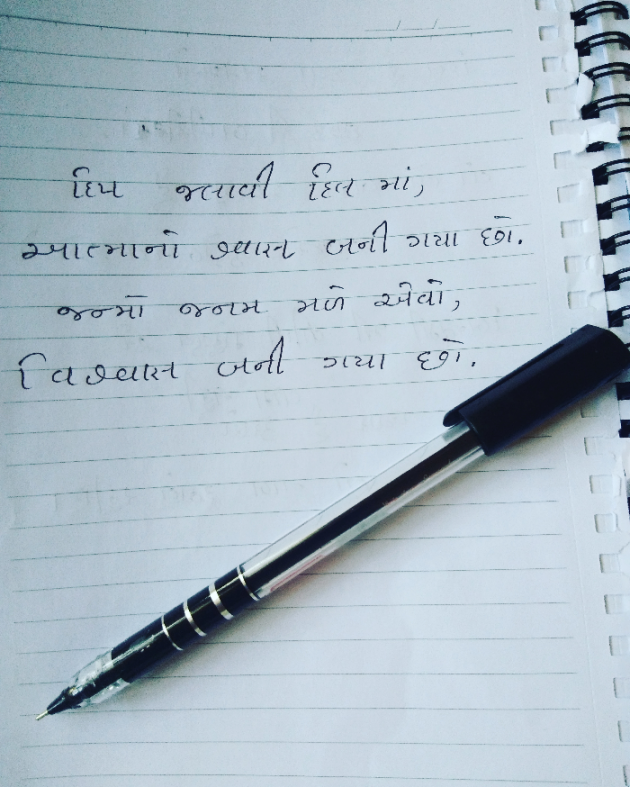 દિપ જલાવી દિલ માં,
આત્માનો શ્વાસ બની ગયા છો.
જન્મો જનમ મળે એવો,
વિશ્વાસ બની ગયા છો.